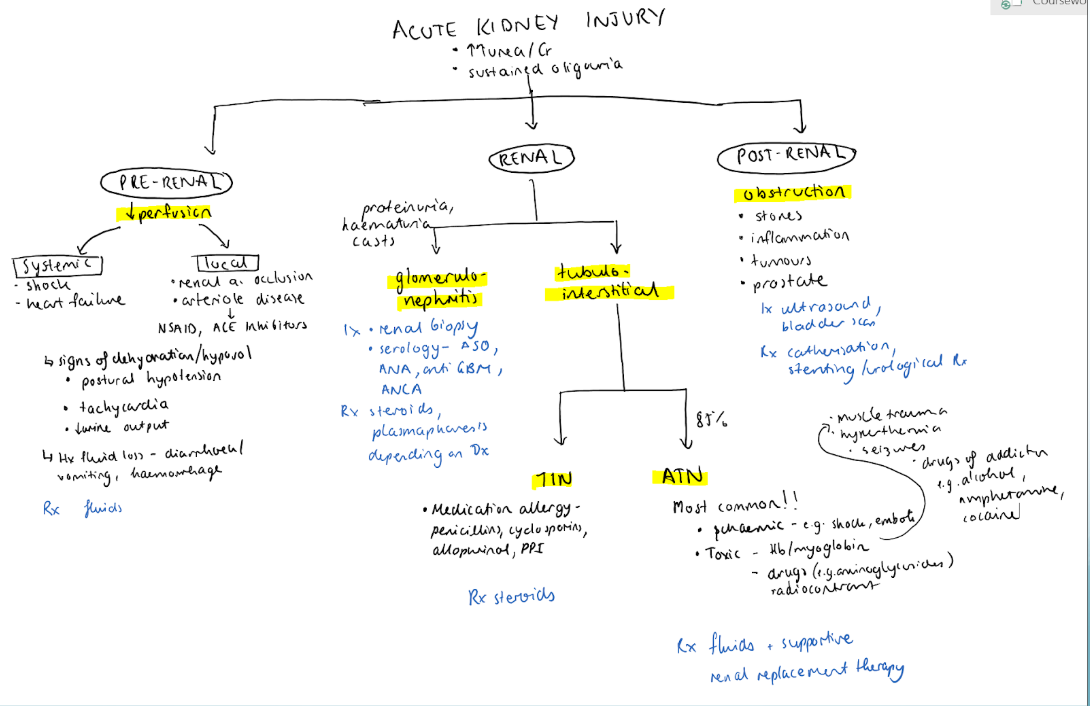 Coursewo
ACUTE KIDNEY INJURY
• ↑↑urea/Cr
• sustained oliguria
PRE-RENAL
↓perfusion
systemic
- shock
- heart failure
local
• renal a. occlusion
• arteriole disease
↓
NSAID, ACE Inhibitors
↳ signs of dehydration/hypovol
• postural hypotension
• tachycardia
• ↓urine output
↳ Hx fluid loss - diarrhoea/
vomiting, haemorrhage
Rx fluids
RENAL
proteinuria,
haematuria
casts
glomerulo-
nephritis
Ix • renal biopsy
• serology - ASO,
ANA, anti GBM,
ANCA
Rx steroids,
plasmapheresis
depending on Dx
tubulo-
interstitial
TIN
• Medication allergy-
penicillins, cyclosporins,
allopurinol, PPI
Rx steroids
85%
ATN
Most common!!
• ischaemic - e.g. shock, emboli
• Toxic - Hb/myoglobin
- drugs (e.g. aminoglycosides)
radiocontrast
• muscle trauma
• hyperthermia
• seizures
• drugs of addiction
e.g. alcohol,
amphetamine,
cocaine
Rx fluids + supportive
renal replacement therapy
POST-RENAL
obstruction
• stones
• inflammation
• tumours
• prostate
Ix ultrasound,
bladder scan
Rx catheriation,
stenting/urological Rx